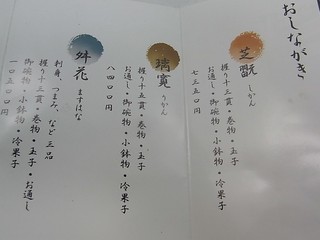 おしながき
芝翫 しかん
握り十三貫・巻物・玉子
お通し・御碗物・小鉢物・冷果子
七三五〇円
璃寛 りかん
握り十五貫・巻物・玉子
お通し・御碗物・小鉢物・冷果子
八四〇〇円
舛花 ますはな
刺身、つまみ、など三品
握り十二貫・巻物・玉子・お通し
御碗物・小鉢物・冷果子
一〇五〇〇円